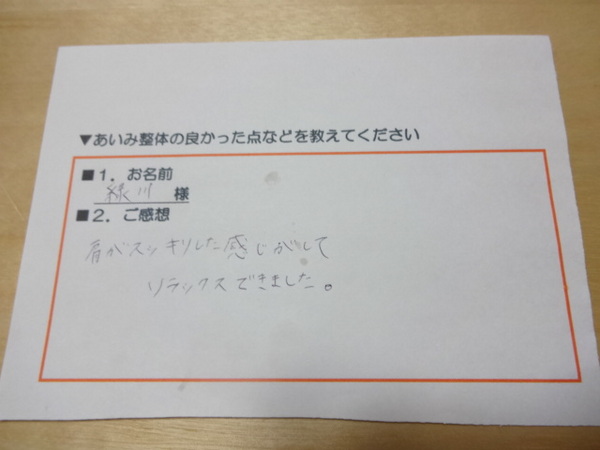 ▼あいみ整体の良かった点などを教えてください
■1．お名前
緑川 様
■2．ご感想
肩がスッキリした感じがして
リラックスできました。